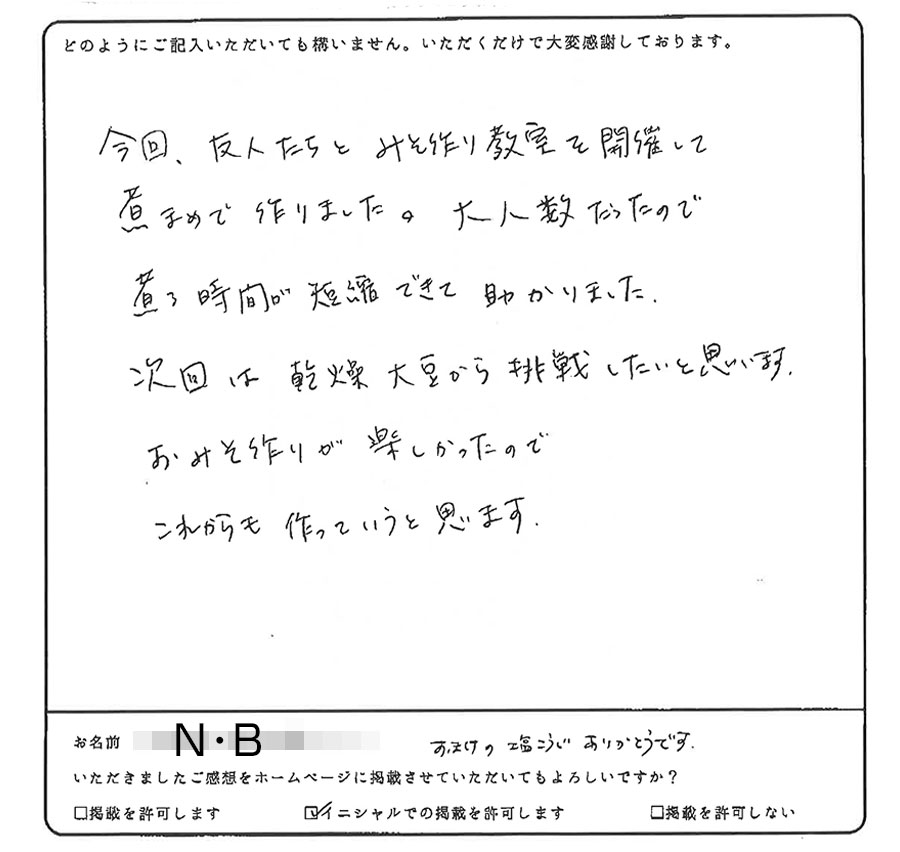 どのようにご記入いただいても構いません。いただくだけで大変感謝しております。
今回、友人たちと みそ作り教室を開催して
煮まめで 作りました。大人数だったので
煮る時間が 短縮できて 助かりました.
次回は 乾燥 大豆から 挑戦したいと思います.
おみそ作りが 楽しかったので
これからも 作っていこうと 思います.
お名前 N・B おまけの 塩こうじ ありがとうです.
いただきましたご感想をホームページに掲載させていただいてもよろしいですか？
□掲載を許可します ☑イニシャルでの掲載を許可します □掲載を許可しない